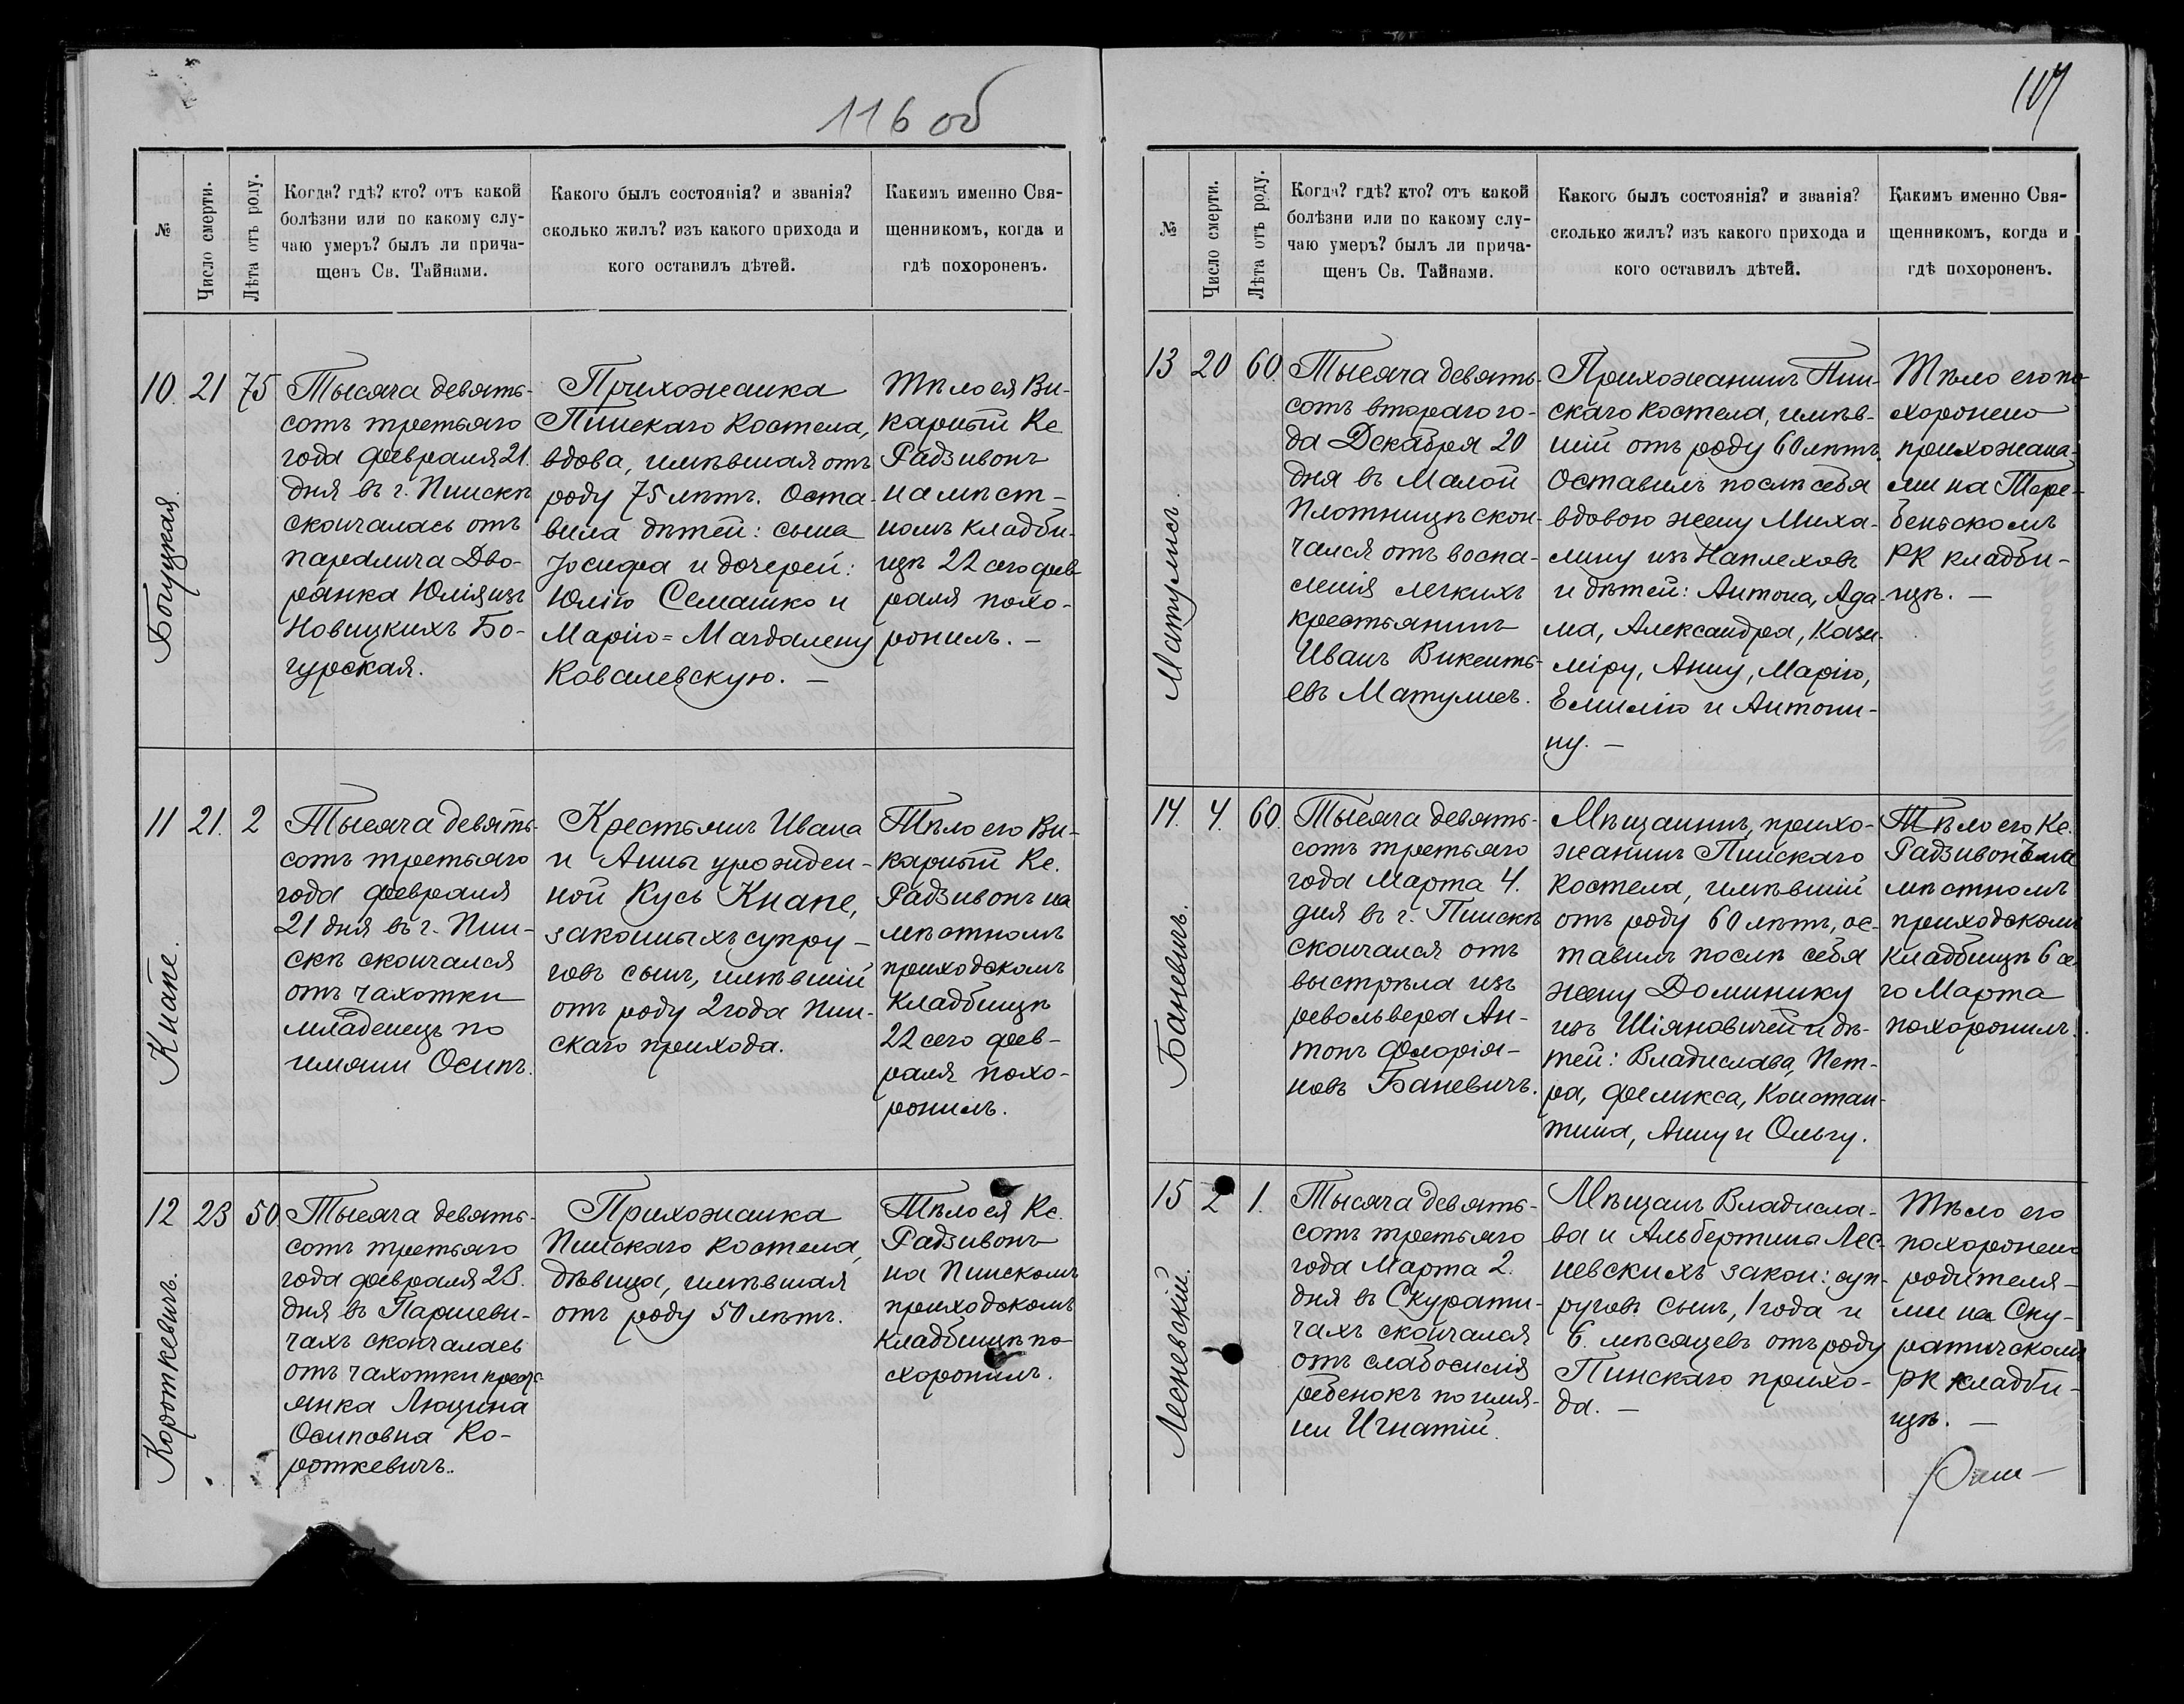 116 об
№
Число смерти.
Лѣта отъ роду.
Когда? гдѣ? кто? отъ какой
болѣзни или по какому слу-
чаю умеръ? былъ ли прича-
щенъ Св. Тайнами.
Какого былъ состоянія? и званія?
сколько жилъ? изъ какого прихода и
кого оставилъ дѣтей.
Какимъ именно Свя-
щенникомъ, когда и
гдѣ похороненъ.
10. 21 75
Тысяча девять-
сотъ третьяго
года февраля 21.
дня въ г. Пинскѣ
скончалась отъ
паралича Дво-
рянка Юлія изъ
Новицкихъ Бо-
гурская.
Прихожанка
Пинскаго Костела,
вдова, имѣвшая отъ
роду 75 лѣтъ. Оста-
вила дѣтей: сына
Іосифа и дочерей:
Юлію Семашко и
Марію=Магдалену
Ковалевскую. —
Тѣло ея Ви-
карный Кс
Радзивонъ
на мѣст-
номъ кладби-
щѣ 22 сего фев
раля похо-
ронилъ. —
11 21. 2
Кнапе.
Тысяча девять-
сотъ третьяго
года февраля
21 дня въ г. Пин-
скѣ скончался
отъ чахотки
младенецъ по
имяни Осипъ.
Крестьянъ Ивана
и Анны урожден-
ной Кусь Кнапе,
законныхъ супру-
говъ сынъ, имѣвшій
отъ роду 2 года Пин-
скаго прихода.
Тѣло его Ви-
карный Кс.
Радзивонъ на
мѣстномъ
приходскомъ
кладбищѣ
22 сего фев-
раля похо-
ронилъ.
12 23 50
Короткевичъ.
Тысяча девять-
сотъ третьяго
года февраля 23.
дня въ Паршеви-
чахъ скончалась
отъ чахотки крест
янка Люцина
Осиповна Ко-
роткевичъ..
Прихожанка
Пинскаго костела,
дѣвица, имѣвшая
отъ роду 50 лѣтъ.
Тѣло ея Кс.
Радзивонъ
на Пинскомъ
приходскомъ
кладбищѣ по-
хоронилъ.
№
Число смерти.
Лѣта отъ роду.
Когда? гдѣ? кто? отъ какой
болѣзни или по какому слу-
чаю умеръ? былъ ли прича-
щенъ Св. Тайнами.
Какого былъ состоянія? и званія?
сколько жилъ? изъ какого прихода и
кого оставилъ дѣтей.
Какимъ именно Свя-
щенникомъ, когда и
гдѣ похороненъ.
13 20 60.
Матулисъ.
Тысяча девять-
сотъ втораго го-
да Декабря 20
дня въ Малой
Плотницѣ скон-
чался отъ воспа-
ленія легкихъ
крестьянинъ
Иванъ Викенть-
евъ Матулисъ.
Прихожанинъ Пин-
скаго Костела, имѣв-
шій отъ роду 60 лѣтъ.
Оставилъ послѣ себя
вдовою жену Миха-
лину изъ Наплеховъ
и дѣтей: Антона, Ада-
ма, Александра, Кази-
міру, Анну, Марію,
Емилію и Антони-
ну. —
Тѣло его по-
хоронено
прихожана-
ми на Тере-
беньскомъ
РК кладби-
щѣ. —
14. 4. 60.
Баневичъ.
Тысяча девять-
сотъ третьяго
года Марта 4.
дня въ г. Пинскѣ
скончался отъ
выстрѣла изъ
револьвера Ан-
тонъ Флорія-
новъ Баневичъ.
Мѣщанинъ, прихо-
жанинъ Пинскаго
Костела, имѣвшій
отъ роду 60 лѣтъ, ос-
тавилъ послѣ себя
жену Доминику
изъ Шіяновичей и дѣ-
тей: Владислава, Пет-
ра, Феликса, Констан-
тина, Анну и Ольгу.
Тѣло его Кс.
Радзивонъ на
мѣстномъ
приходскомъ
кладбищѣ 6 се-
го Марта
похоронилъ.
15 2 1.
Лесневскій.
Тысяча девять-
сотъ третьяго
года Марта 2.
дня въ Скурати-
чахъ скончался
отъ слабосилія
ребенокъ по имя-
ни Игнатій.
Мѣщанъ Владисла-
ва и Альбертины Лес-
невскихъ закон: суп-
руговъ сынъ, 1 года и
6. мѣсяцевъ отъ роду
Пинскаго прихо-
да. —
Тѣло его
похоронено
родителя-
ми на Ску-
ратичскомъ
РК кладби-
щѣ. —